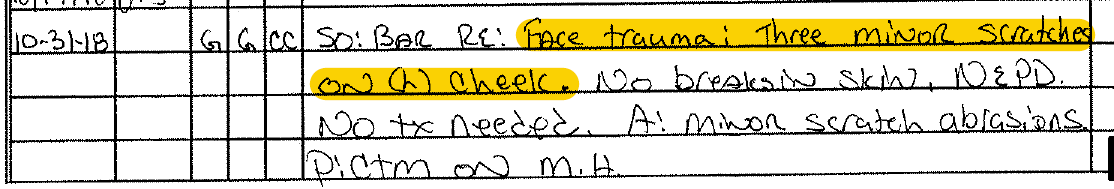 10-31-18 G G CC SO: BAR RE: Face trauma: Three minor scratches
on (L) cheek. No breaks in skin, N&PD.
No tx needed. A: minor scratch abrasions
P: Ctm on M.H.